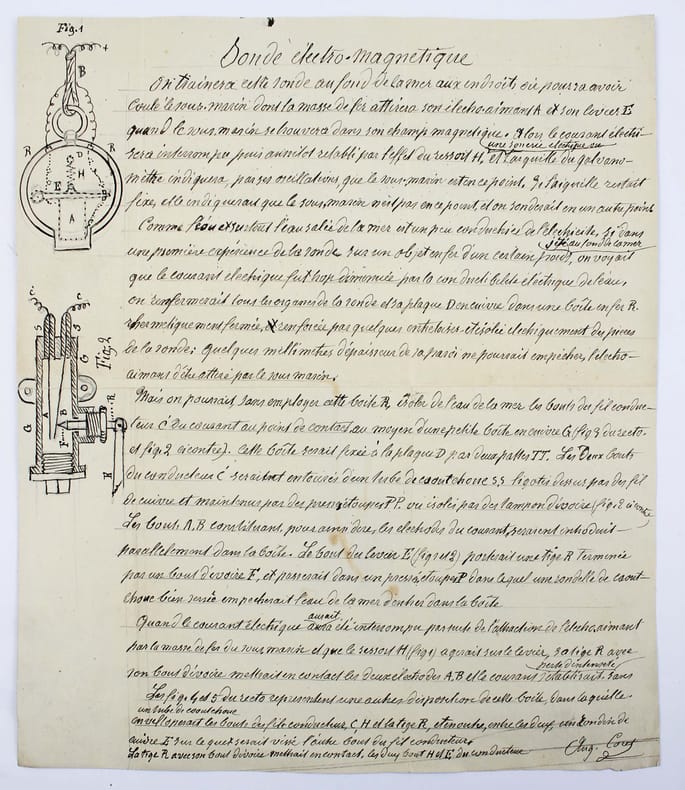 Fig. 1
Sonde électro-magnétique
On trainera cette sonde au fond de la mer aux endroits où pourra avoir
coulé le sous-marin dont la masse de fer attirera son électro-aimant A et son levier E
quand le sous-marin se trouvera dans son champ magnétique. Alors le courant électri-
une sonnerie électrique ou
sera interrompu puis aussitôt rétabli par l'effet du ressort H, et l'aiguille du galvano-
mètre indiquera, par ses oscillations, que le sous-marin est en ce point. Si l'aiguille restait
fixe, elle indiquerait que le sous-marin n'est pas en ce point, et on sonderait en un autre point.
Comme l'eau salée de la mer est un peu conductrice de l'électricité, si dans
jeté au fond de la mer
une première expérience de la sonde sur un objet en fer d'un certain poids, on voyait
que le courant électrique fut trop diminuée par la conductibilité électrique de l'eau,
on renfermerait tous les organes de la sonde et sa plaque D en cuivre dans une boîte en fer R.
hermetiquement fermée, et renforcée par quelques entretoises et isolée électriquement des pièces
de la sonde; quelques millimètres d'épaisseur de sa paroi ne pourrait empêcher l'électro-
aimant d'être attiré par le sous marin.
Mais on pourrait sans employer cette boîte R, isoler de l'eau de la mer les bouts du fil conduc-
teur C du courant au point de contact au moyen d'une petite boîte en cuivre G (fig 3 du recto
et fig. 2 ci contre). Cette boîte serait fixée à la plaque D par deux pattes TT. Les deux bouts
du conducteur C seraient entourés d'un tube de caoutchouc SS ligotés dessus par des fil
de cuivre et maintenus par des presse étoupes PP. ou isolés par des tampon d'ivoire (fig. 2 ci contre)
Les bouts A.B constituant, pour ainsi dire, les électrods du courant, seraient introduit
parallèlement dans la boîte. Le bout du levier E (fig 1 et 2) porterait une tige R terminée
par un bout d'ivoire F, et passerait dans un presse étoupe P dans lequel une rondelle de caout-
chouc bien serrée empecherait l'eau de la mer d'entrer dans la boîte
aurait
Quand le courant électrique aura été interrompu par suite de l'attraction de l'électro-aimant
par la masse de fer du sous marin et que le ressort H (fig 1) agirait sur le levier, sa tige R avec
son bout d'ivoire mettrait en contact les deux électrodes A, B et le courant rétablirait sans
perte d'intensité
Les fig. 4 et 5 du recto représentent une autre disposition de cette boîte, dans laquelle
un tube de caoutchouc
envelopperait les bouts du fil conducteur C, H et la tige R, et en outre, entre les
cuivre E sur lequel serait vissé l'autre bout du fil conducteur
La tige R avec son bout d'ivoire mettrait en contact, les deux bout H et E, du conducteur
Aug.
Fig. 2
+
B
R
R
D
H
E
A
C
C
S
S
G
G
A
B
F
R
E